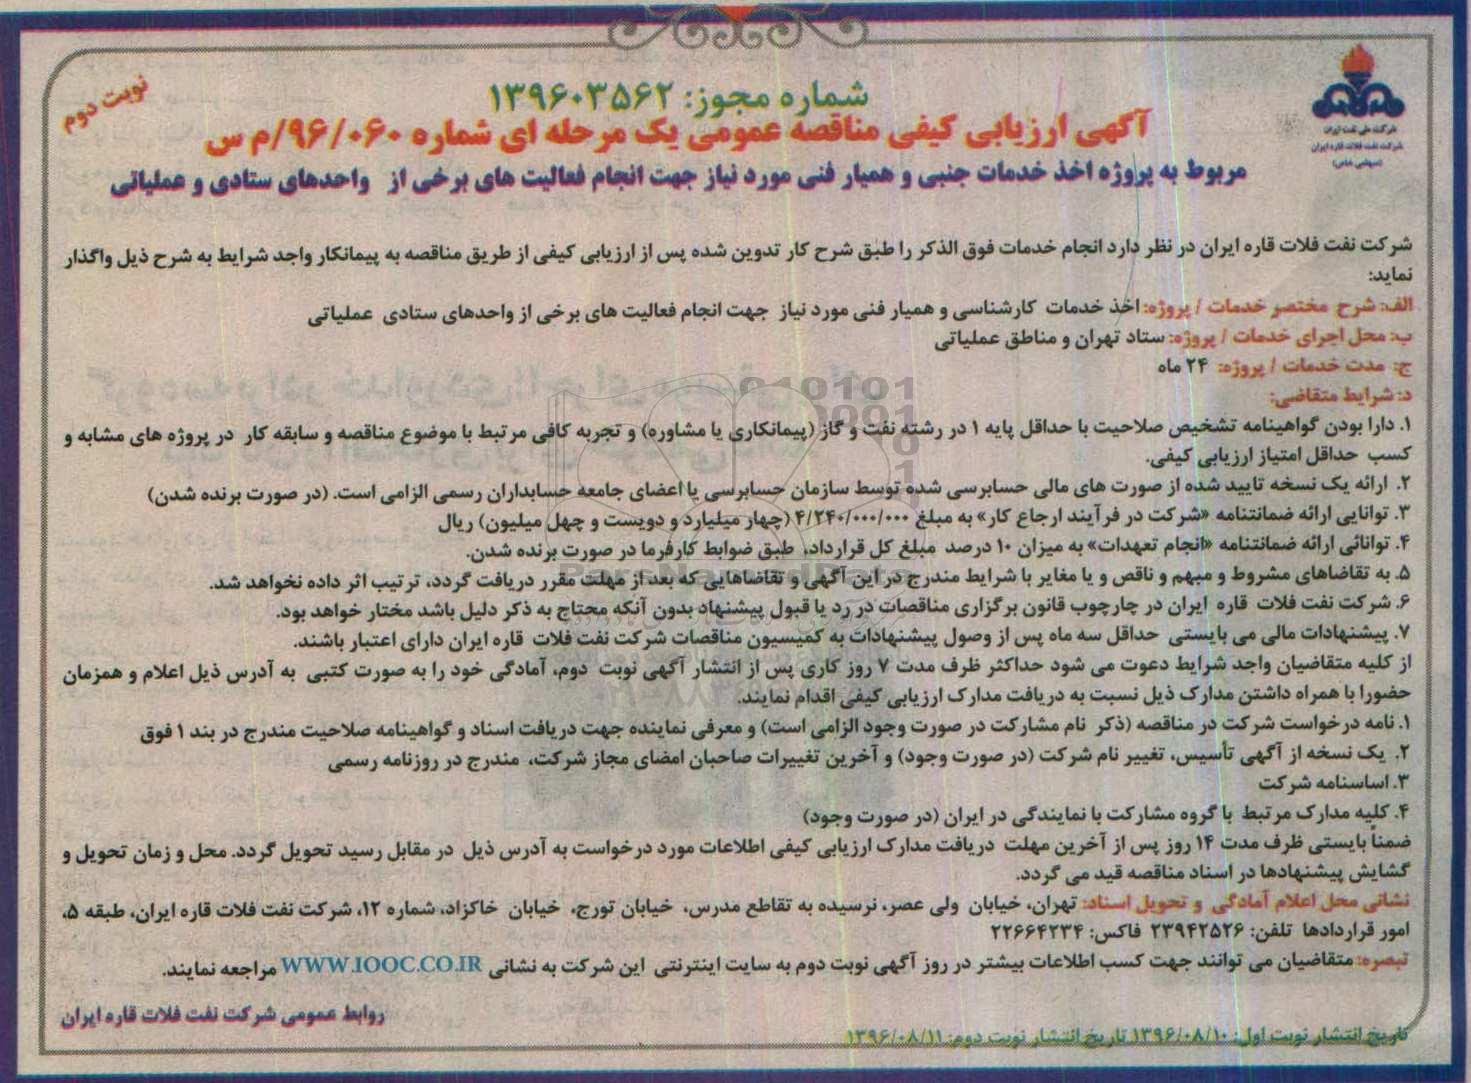 شرکت ملی نفت ایران
شرکت نفت فلات قاره ایران
(سهامی خاص)
نوبت دوم
شماره مجوز: ۱۳۹۶۰۳۵۶۲
آگهی ارزیابی کیفی مناقصه عمومی یک مرحله ای شماره ۹۶/۰۶۰/م س
مربوط به پروژه اخذ خدمات جنبی و همیار فنی مورد نیاز جهت انجام فعالیت های برخی از واحدهای ستادی و عملیاتی
شرکت نفت فلات قاره ایران در نظر دارد انجام خدمات فوق الذکر را طبق شرح کار تدوین شده پس از ارزیابی کیفی از طریق مناقصه به پیمانکار واجد شرایط به شرح ذیل واگذار
نماید:
الف: شرح مختصر خدمات / پروژه: اخذ خدمات کارشناسی و همیار فنی مورد نیاز جهت انجام فعالیت های برخی از واحدهای ستادی عملیاتی
ب: محل اجرای خدمات / پروژه: ستاد تهران و مناطق عملیاتی
ج: مدت خدمات / پروژه: ۲۴ ماه
د: شرایط متقاضی:
۱. دارا بودن گواهینامه تشخیص صلاحیت با حداقل پایه ۱ در رشته نفت و گاز (پیمانکاری یا مشاوره) و تجربه کافی مرتبط با موضوع مناقصه و سابقه کار در پروژه های مشابه و
کسب حداقل امتیاز ارزیابی کیفی.
۲. ارائه یک نسخه تایید شده از صورت های مالی حسابرسی شده توسط سازمان حسابرسی یا اعضای جامعه حسابداران رسمی الزامی است. (در صورت برنده شدن)
۳. توانایی ارائه ضمانتنامه «شرکت در فرآیند ارجاع کار» به مبلغ ۴/۲۴۰/۰۰۰/۰۰۰ (چهار میلیارد و دویست و چهل میلیون) ریال
۴. توانائی ارائه ضمانتنامه «انجام تعهدات» به میزان ۱۰ درصد مبلغ کل قرارداد، طبق ضوابط کارفرما در صورت برنده شدن.
۵. به تقاضاهای مشروط و مبهم و ناقص و یا مغایر با شرایط مندرج در این آگهی و تقاضاهایی که بعد از مهلت مقرر دریافت گردد، ترتیب اثر داده نخواهد شد.
۶. شرکت نفت فلات قاره ایران در چارچوب قانون برگزاری مناقصات در رد یا قبول پیشنهاد بدون آنکه محتاج به ذکر دلیل باشد مختار خواهد بود.
۷. پیشنهادات مالی می بایستی حداقل سه ماه پس از وصول پیشنهادات به کمیسیون مناقصات شرکت نفت فلات قاره ایران دارای اعتبار باشند.
از کلیه متقاضیان واجد شرایط دعوت می شود حداکثر ظرف مدت ۷ روز کاری پس از انتشار آگهی نوبت دوم، آمادگی خود را به صورت کتبی به آدرس ذیل اعلام و همزمان
حضورا با همراه داشتن مدارک ذیل نسبت به دریافت مدارک ارزیابی کیفی اقدام نمایند.
۱. نامه درخواست شرکت در مناقصه (ذکر نام مشارکت در صورت وجود الزامی است) و معرفی نماینده جهت دریافت اسناد و گواهینامه صلاحیت مندرج در بند ۱ فوق
۲. یک نسخه از آگهی تأسیس، تغییر نام شرکت (در صورت وجود) و آخرین تغییرات صاحبان امضای مجاز شرکت، مندرج در روزنامه رسمی
۳. اساسنامه شرکت
۴. کلیه مدارک مرتبط با گروه مشارکت با نمایندگی در ایران (در صورت وجود)
ضمناً بایستی ظرف مدت ۱۴ روز پس از آخرین مهلت دریافت مدارک ارزیابی کیفی اطلاعات مورد درخواست به آدرس ذیل در مقابل رسید تحویل گردد. محل و زمان تحویل و
گشایش پیشنهادها در اسناد مناقصه قید می گردد.
نشانی محل اعلام آمادگی و تحویل اسناد: تهران، خیابان ولی عصر، نرسیده به تقاطع مدرس، خیابان تورج، خیابان خاکزاد، شماره ۱۲، شرکت نفت فلات قاره ایران، طبقه ۵،
امور قراردادها تلفن: ۲۳۹۴۲۵۲۶ فاکس: ۲۲۶۶۴۲۳۴
تبصره: متقاضیان می توانند جهت کسب اطلاعات بیشتر در روز آگهی نوبت دوم به سایت اینترنتی این شرکت به نشانی WWW.IOOC.CO.IR مراجعه نمایند.
روابط عمومی شرکت نفت فلات قاره ایران
تاریخ انتشار نوبت اول: ۱۳۹۶/۰۸/۱۰ تاریخ انتشار نوبت دوم: ۱۳۹۶/۰۸/۱۱